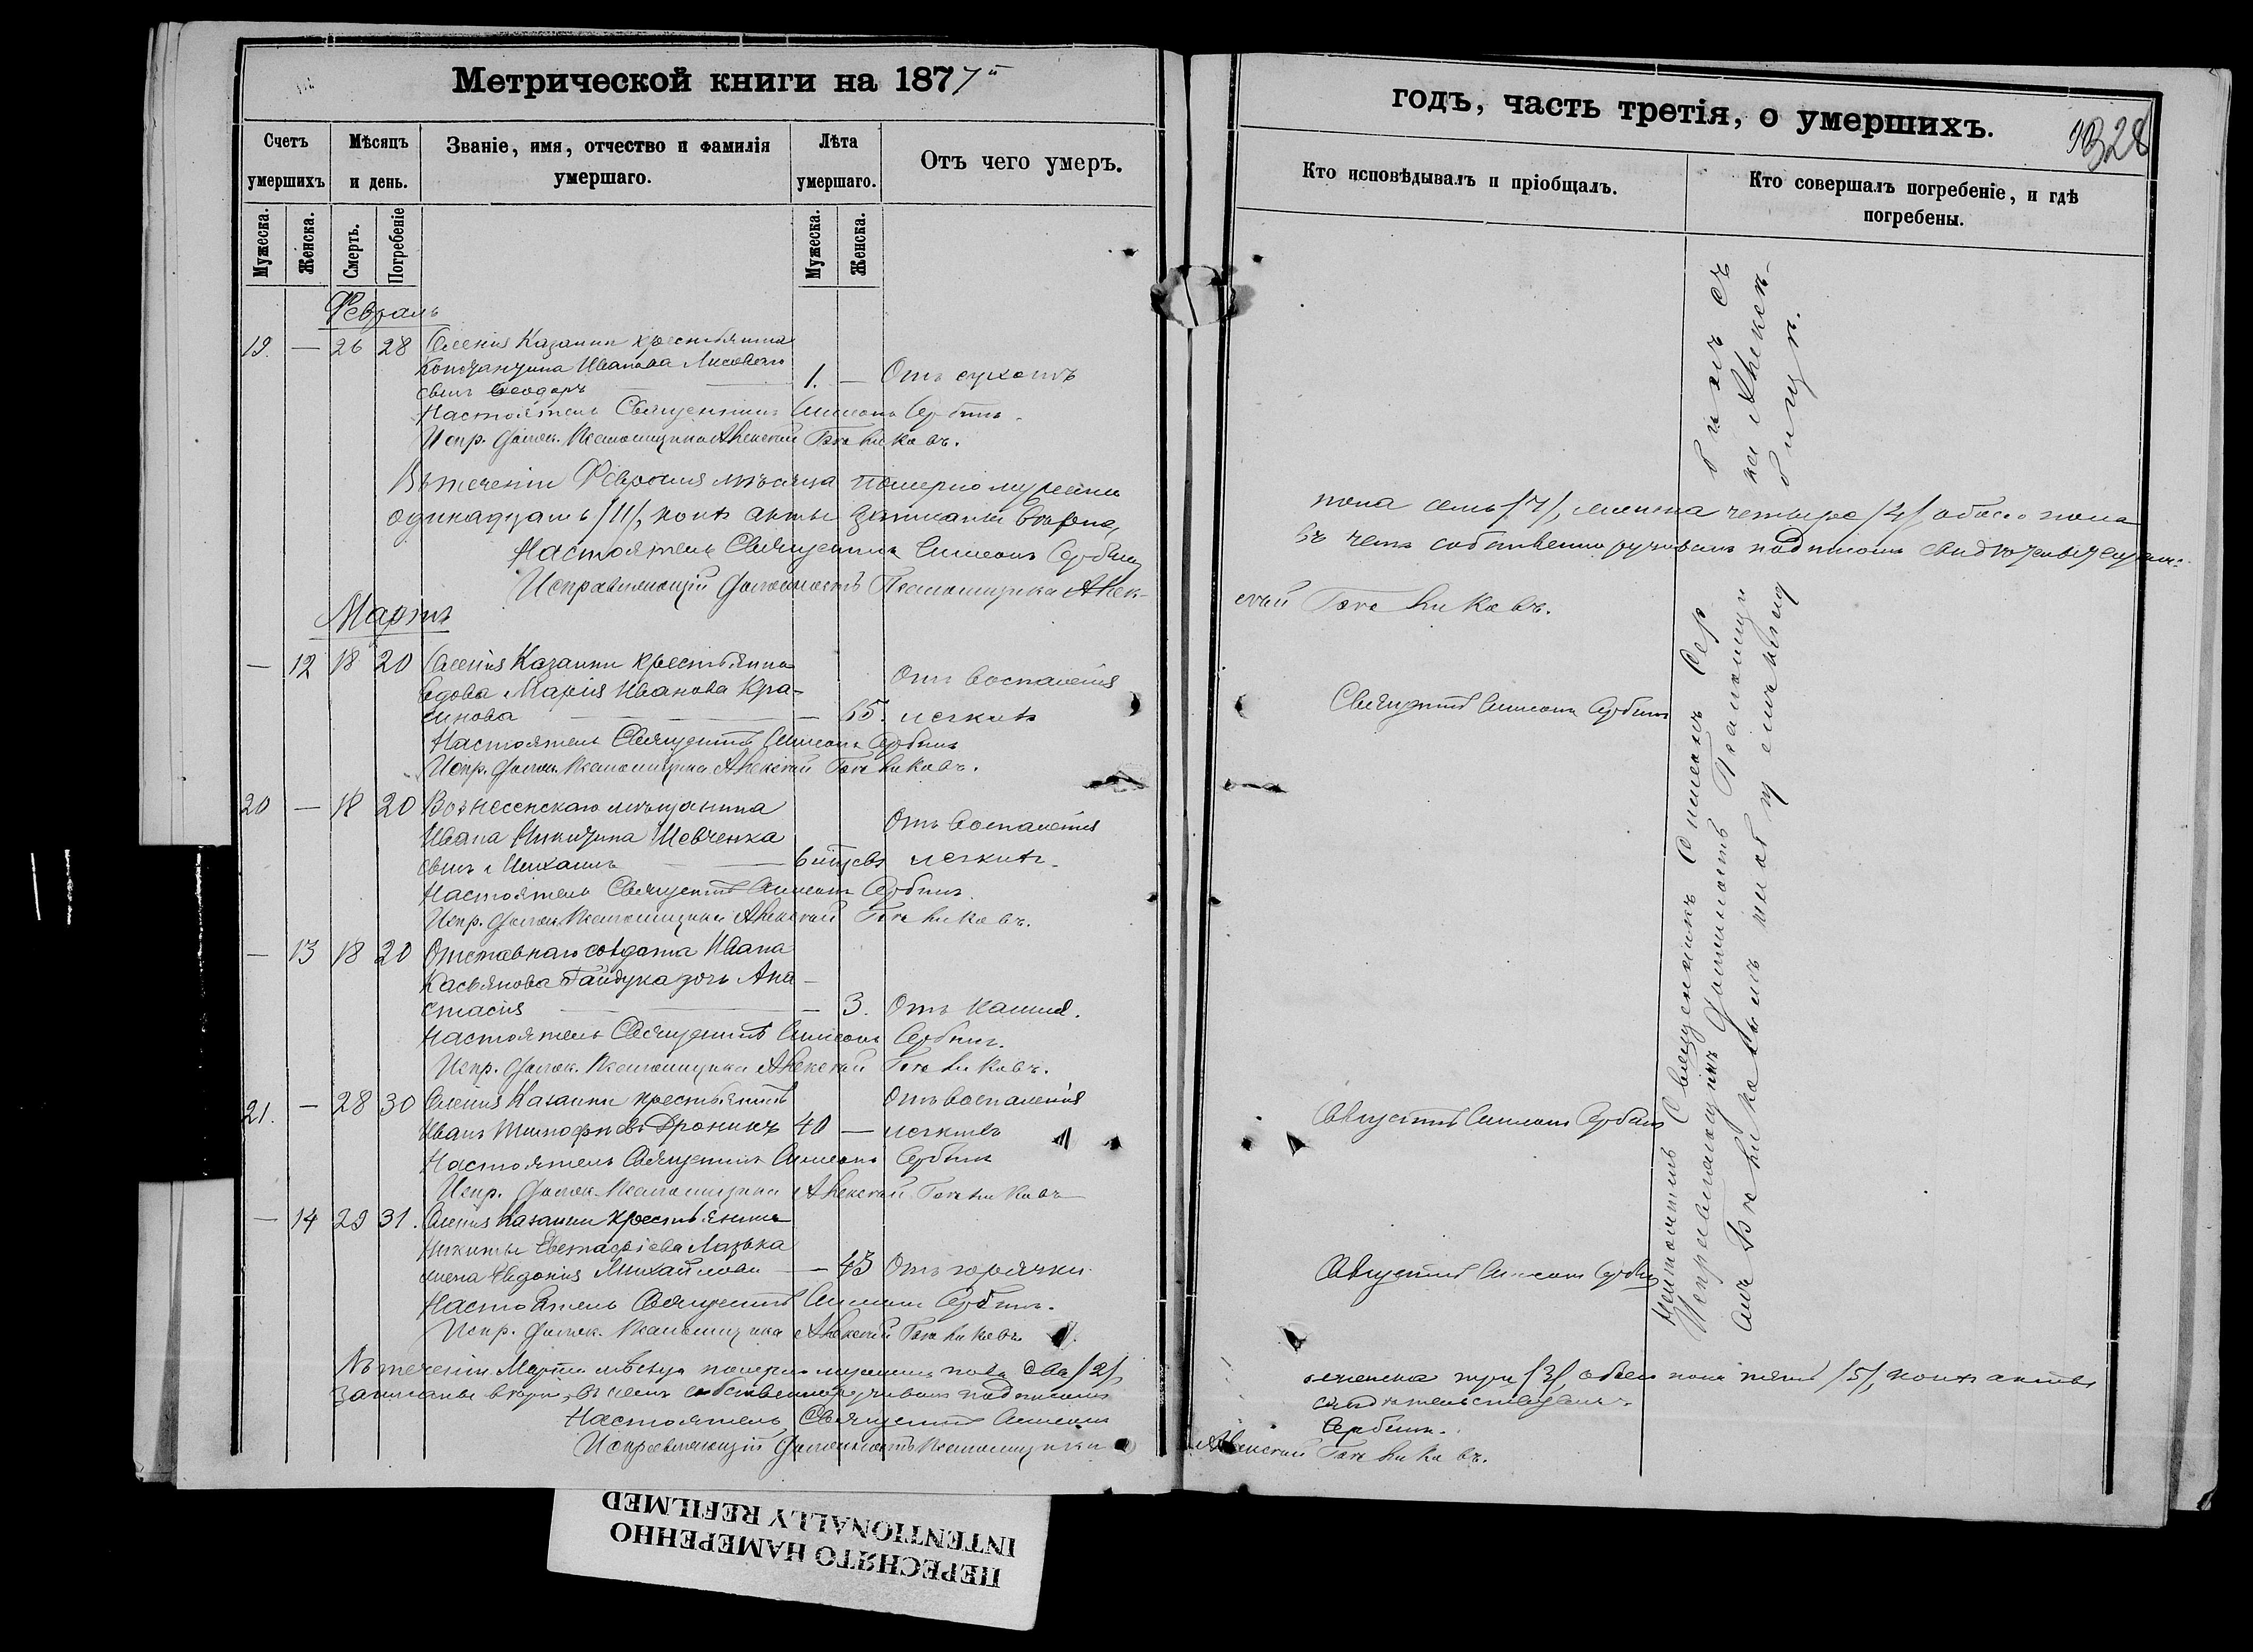 Метрической книги на 1877й
годъ, часть третія, о умершихъ.
328
Счетъ умершихъ
Мѣсяцъ и день.
Званіе, имя, отчество и фамилія умершаго.
Лѣта умершаго.
Отъ чего умеръ.
Кто исповѣдывалъ и пріобщалъ.
Кто совершалъ погребеніе, и гдѣ погребены.
Мужеска.
Женска.
Смерть.
Погребеніе
Мужеска.
Женска.
Февраль
19. — 26 28 Селенія Казанки крестьянина
Константина Иванова Лисового
сынъ Ѳеодоръ — 1. — Отъ сухотъ
Настоятель Священникъ Симеонъ Сербинъ.
Испр. долж. Псаломщика Алексѣй
Въ теченіи Февраля мѣсяца померло мужеска
пола семь /7/, женска четыре /4/ обоего пола
одинадцать /11/, коихъ акты записаны вѣрно,
въ чемъ собственноручнымъ подписомъ свидѣтельствуемъ:
Настоятель Священникъ Симеонъ Сербинъ
Исправляющій должность Псаломщика Алек-
сѣй
Мартъ
— 12 18 20 Селенія Казанки крестьянка
вдова Марія Иванова Кра-
синова — 55. Отъ воспаленія легкихъ
Священникъ Симеонъ Сербинъ
Настоятель Священникъ Симеонъ Сербинъ
Испр. долж. Псаломщика Алексѣй
20 — 18 20 Вознесенскаго мѣщанина
Ивана Никитина Шевченка
сынъ Михаилъ — 6 мѣсяц. Отъ воспаленія легкихъ.
Настоятель Священникъ Симеонъ Сербинъ.
Испр. долж. Псаломщика Алексѣй
— 13 18 20 Отставнаго солдата Ивана
Касьянова Гайдука дочь Ана-
стасія — 3. Отъ кашля.
Настоятель Священникъ Симеонъ Сербинъ.
Испр. долж. Псаломщика Алексѣй
21. — 28 30 Селенія Казанки крестьянинъ
Иванъ Тимофѣевъ 40 — Отъ воспаленія легкихъ
Священникъ Симеонъ Сербинъ
Настоятель Священникъ Симеонъ Сербинъ
Испр. долж. Псаломщика Алексѣй
— 14 29 31. Селенія Казанки крестьянина
Никиты Евстафіева Лазька
жена Евдокія Михайлова — 43 Отъ горячки
Священникъ Симеонъ Сербинъ
Настоятель Священникъ Симеонъ Сербинъ.
Испр. долж. Псаломщика Алексѣй
Въ теченіи Марта мѣсяца померло мужеска пола два /2/,
женска три /3/, обоего пола пять /5/, коихъ акты
записаны вѣрно, въ чемъ собственноручнымъ подписомъ
свидѣтельствуемъ.
Настоятель Священникъ Симеонъ
Сербинъ.
Исправляющій должность Псаломщика
Алексѣй
Настоятель Священникъ Симеонъ Сер
бинъ съ
Исправляющимъ должность Псаломщи
ка Алексѣ-
ПЕРЕСНЯТО НАМЕРЕННО
INTENTIONALLY REFILMED